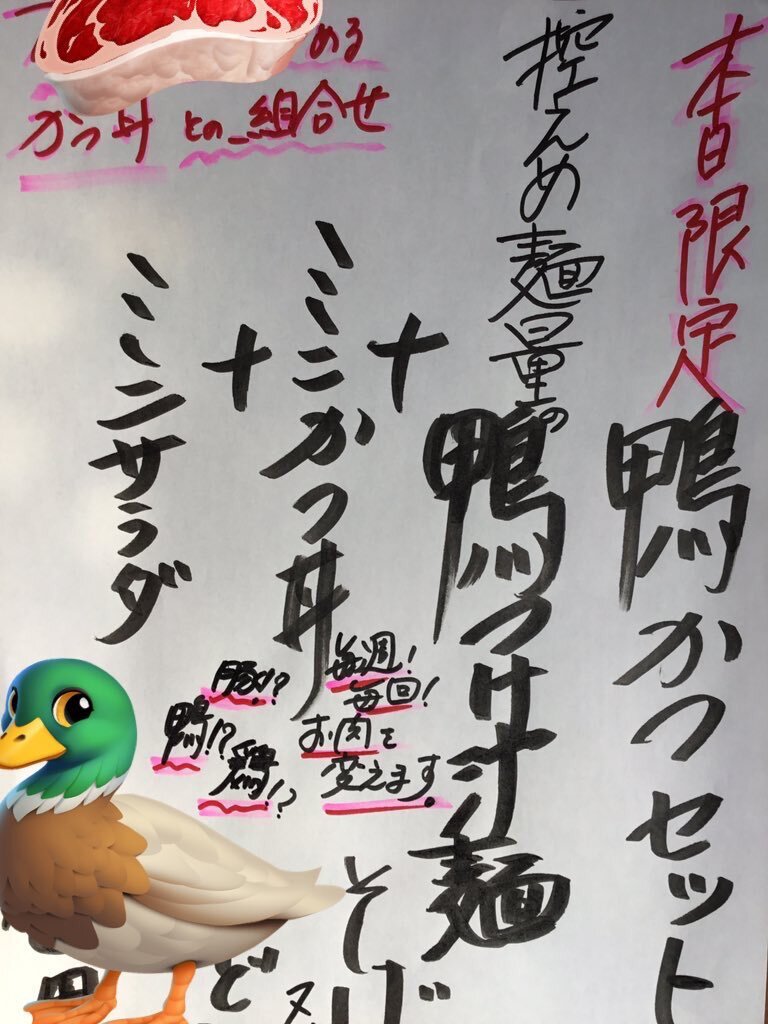 本日限定
鴨かつセット
控えめ麺量の
鴨つけ汁麺
+
ミニかつ丼
+
ミニサラダ
める
かつ丼との組合せ
毎週!
毎回!
お肉を
変えます。
豚!?
鴨!?
鶏!?
そば
ど